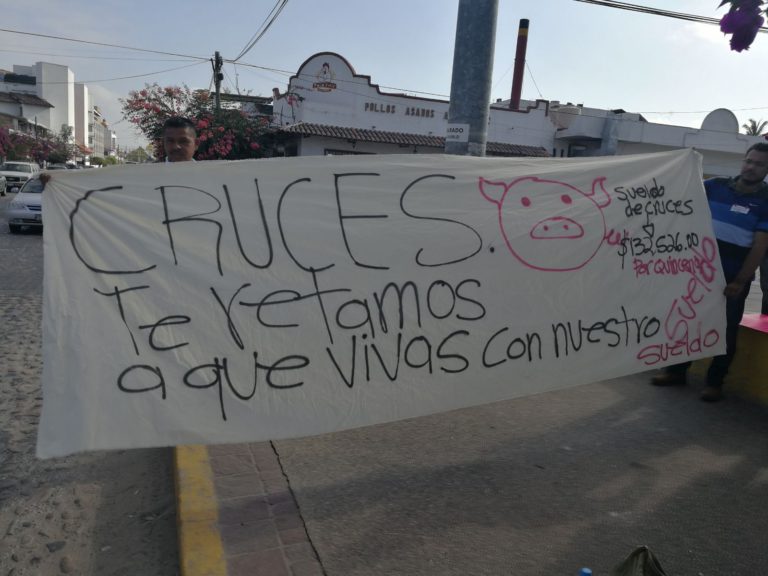 CRUCES.
Te retamos
a que vivas con nuestro
sueldo
sueldo
sueldo
de cruces
$132,526.00
Por quincena
POLLOS ASADOS